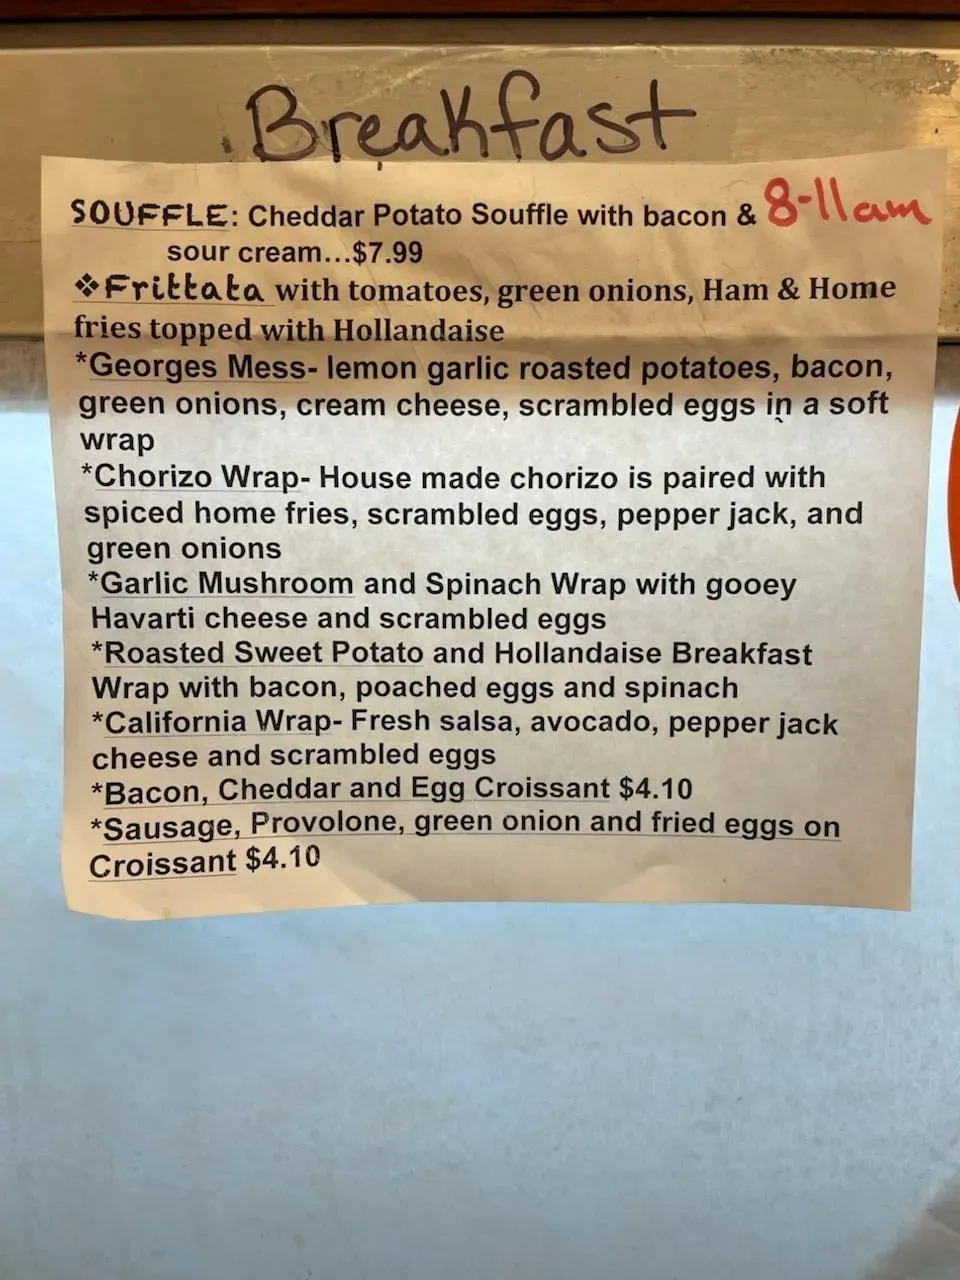 Breakfast
SOUFFLE: Cheddar Potato Souffle with bacon & 8-11am
sour cream...$7.99
❖Frittata with tomatoes, green onions, Ham & Home
fries topped with Hollandaise
*Georges Mess- lemon garlic roasted potatoes, bacon,
green onions, cream cheese, scrambled eggs in a soft
wrap
*Chorizo Wrap- House made chorizo is paired with
spiced home fries, scrambled eggs, pepper jack, and
green onions
*Garlic Mushroom and Spinach Wrap with gooey
Havarti cheese and scrambled eggs
*Roasted Sweet Potato and Hollandaise Breakfast
Wrap with bacon, poached eggs and spinach
*California Wrap- Fresh salsa, avocado, pepper jack
cheese and scrambled eggs
*Bacon, Cheddar and Egg Croissant $4.10
*Sausage, Provolone, green onion and fried eggs on
Croissant $4.10